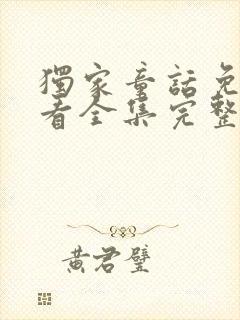 獨家童話免
看全集完整
黃君璧